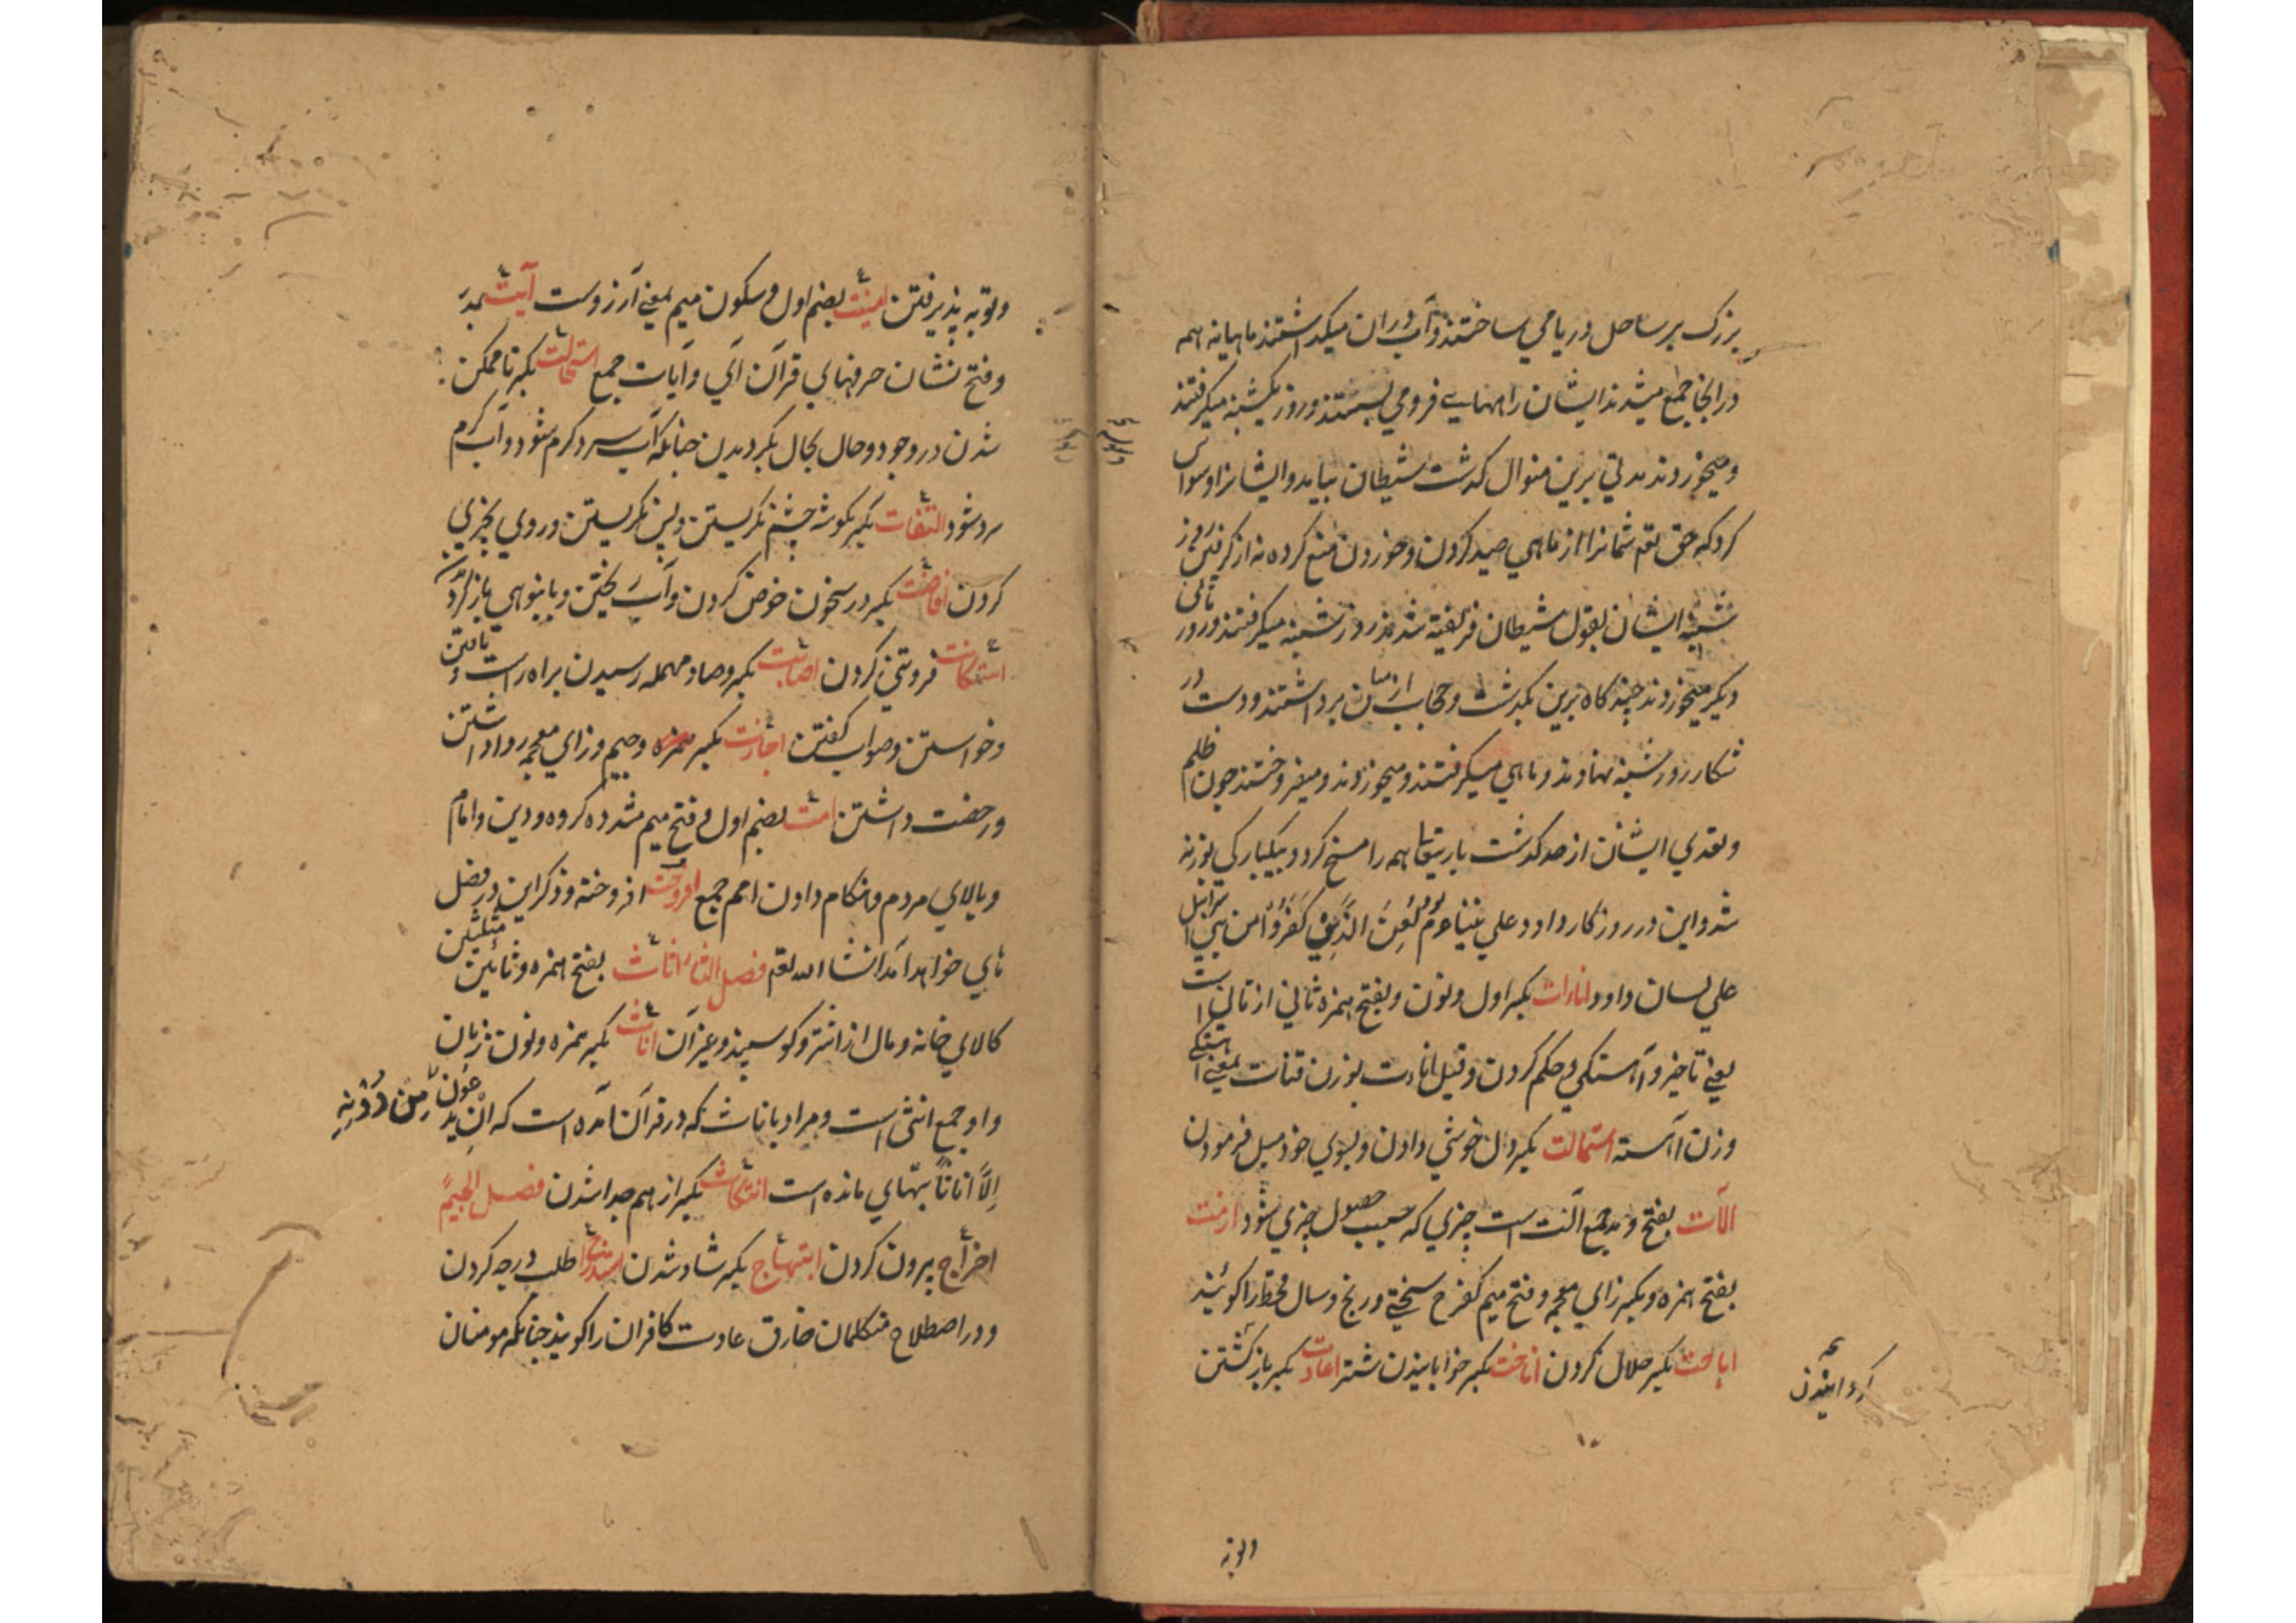 بزرک بر ساحل دریا می ساختند و آب دران میکذاشتند ماهیانه همه
درانجا جمع میشدند ایشان راههای فرو می بستند و روز یکشنبه میکرفتند
و میخوردند مدتی برین منوال کذشت شیطان بیاید و ایشانرا وسواس
کرد که حق تعم شمانرا از ماهی صید کردن و خوردن منع کرده نه از کرفتن روز
شنبه ایشان بقول شیطان فریفته شدند روز شنبه میکرفتند و روز
دیکر میخوردند چند کاه برین بکذشت و حجاب از میان برداشتند و دست در
شکار روز شنبه نهادند و ماهی میکرفتند و میخوردند و میفروختند چون ظلم
و تعدی ایشان از حد کذشت باریتعا همه را مسخ کرد و بیکبارکی بوزنه
شد و این در روزکار داود علی نبینا و م بود لعن الذین کفروا من بنی اسرائیل
علی لسان داود اناءات بکسر اول و نون و بفتح همزه ثانی از تانی است
یعنی تاخیر و آهستکی و حکم کردن و قیل انادت بوزن قنات بمعنی آهستکی
وزن آهسته استمالت بکسر دال خوشی دادن و بسوی خود میل فرمودن
آلات بفتح و مد جمع آلت است چیزی که سبب حصول چیزی شود ازمت
بفتح همزه و بکسر زای معجمه و فتح میم کفرح سختی و رنج و سال قحط را کویند
اباحت بکسر حلال کردن اناخت بکسر خوابانیدن شتر اعادت بکسر باز کشتن
کردانیدن
و توبه
و توبه پذیرفتن امنیت بضم اول و سکون میم یعنی آرزوست آیت بمد
و فتح نشان حرفهای قرآن آی و آیات جمع استحالت بکسر ناممکن
شدن در وجود و حال بحال بکردیدن چنانکه آب سرد کرم شود و آب کرم
سرد شود التفات بکسر بکوشه چشم نکریستن و پس نکریستن و روی بچیزی
کردن افاضت بکسر در سخون خوض کردن و آب ریختن و بانبوهی بازکردیدن
استکانت فروتنی کردن اصابت بکسر و صاد مهمله رسیدن براه راست و یافتن
و خواستن و صواب کفتن اجازت بکسر همزه و جیم و زای معجمه روا داشتن
و رخصت داشتن امت بضم اول و فتح میم مشدده کروه و دین و امام
و بالای مردم و هنکام دادن امم جمع افروخت افروخته و ذکر این در فصل
تای خواهد آمد انشا الله تعم فصل الثاء اثاث بفتح همزه و ثائین مثلثین
کالای خانه و مال از اشتر و کوسپند و غیر آن اناث بکسر همزه و نون زنان
و او جمع انثی است و مراد باناث که در قرآن آمده است که ان یدعون من دونه
الا اناثا بتهای مانده است انتکاث بکسر از هم جدا شدن فصل الجیم
اخراج بیرون کردن ابتهاج بکسر شاد شدن استدراج طلب درجه کردن
و در اصطلاح متکلمان خارق عادت کافران را کویند چنانکه مومنان